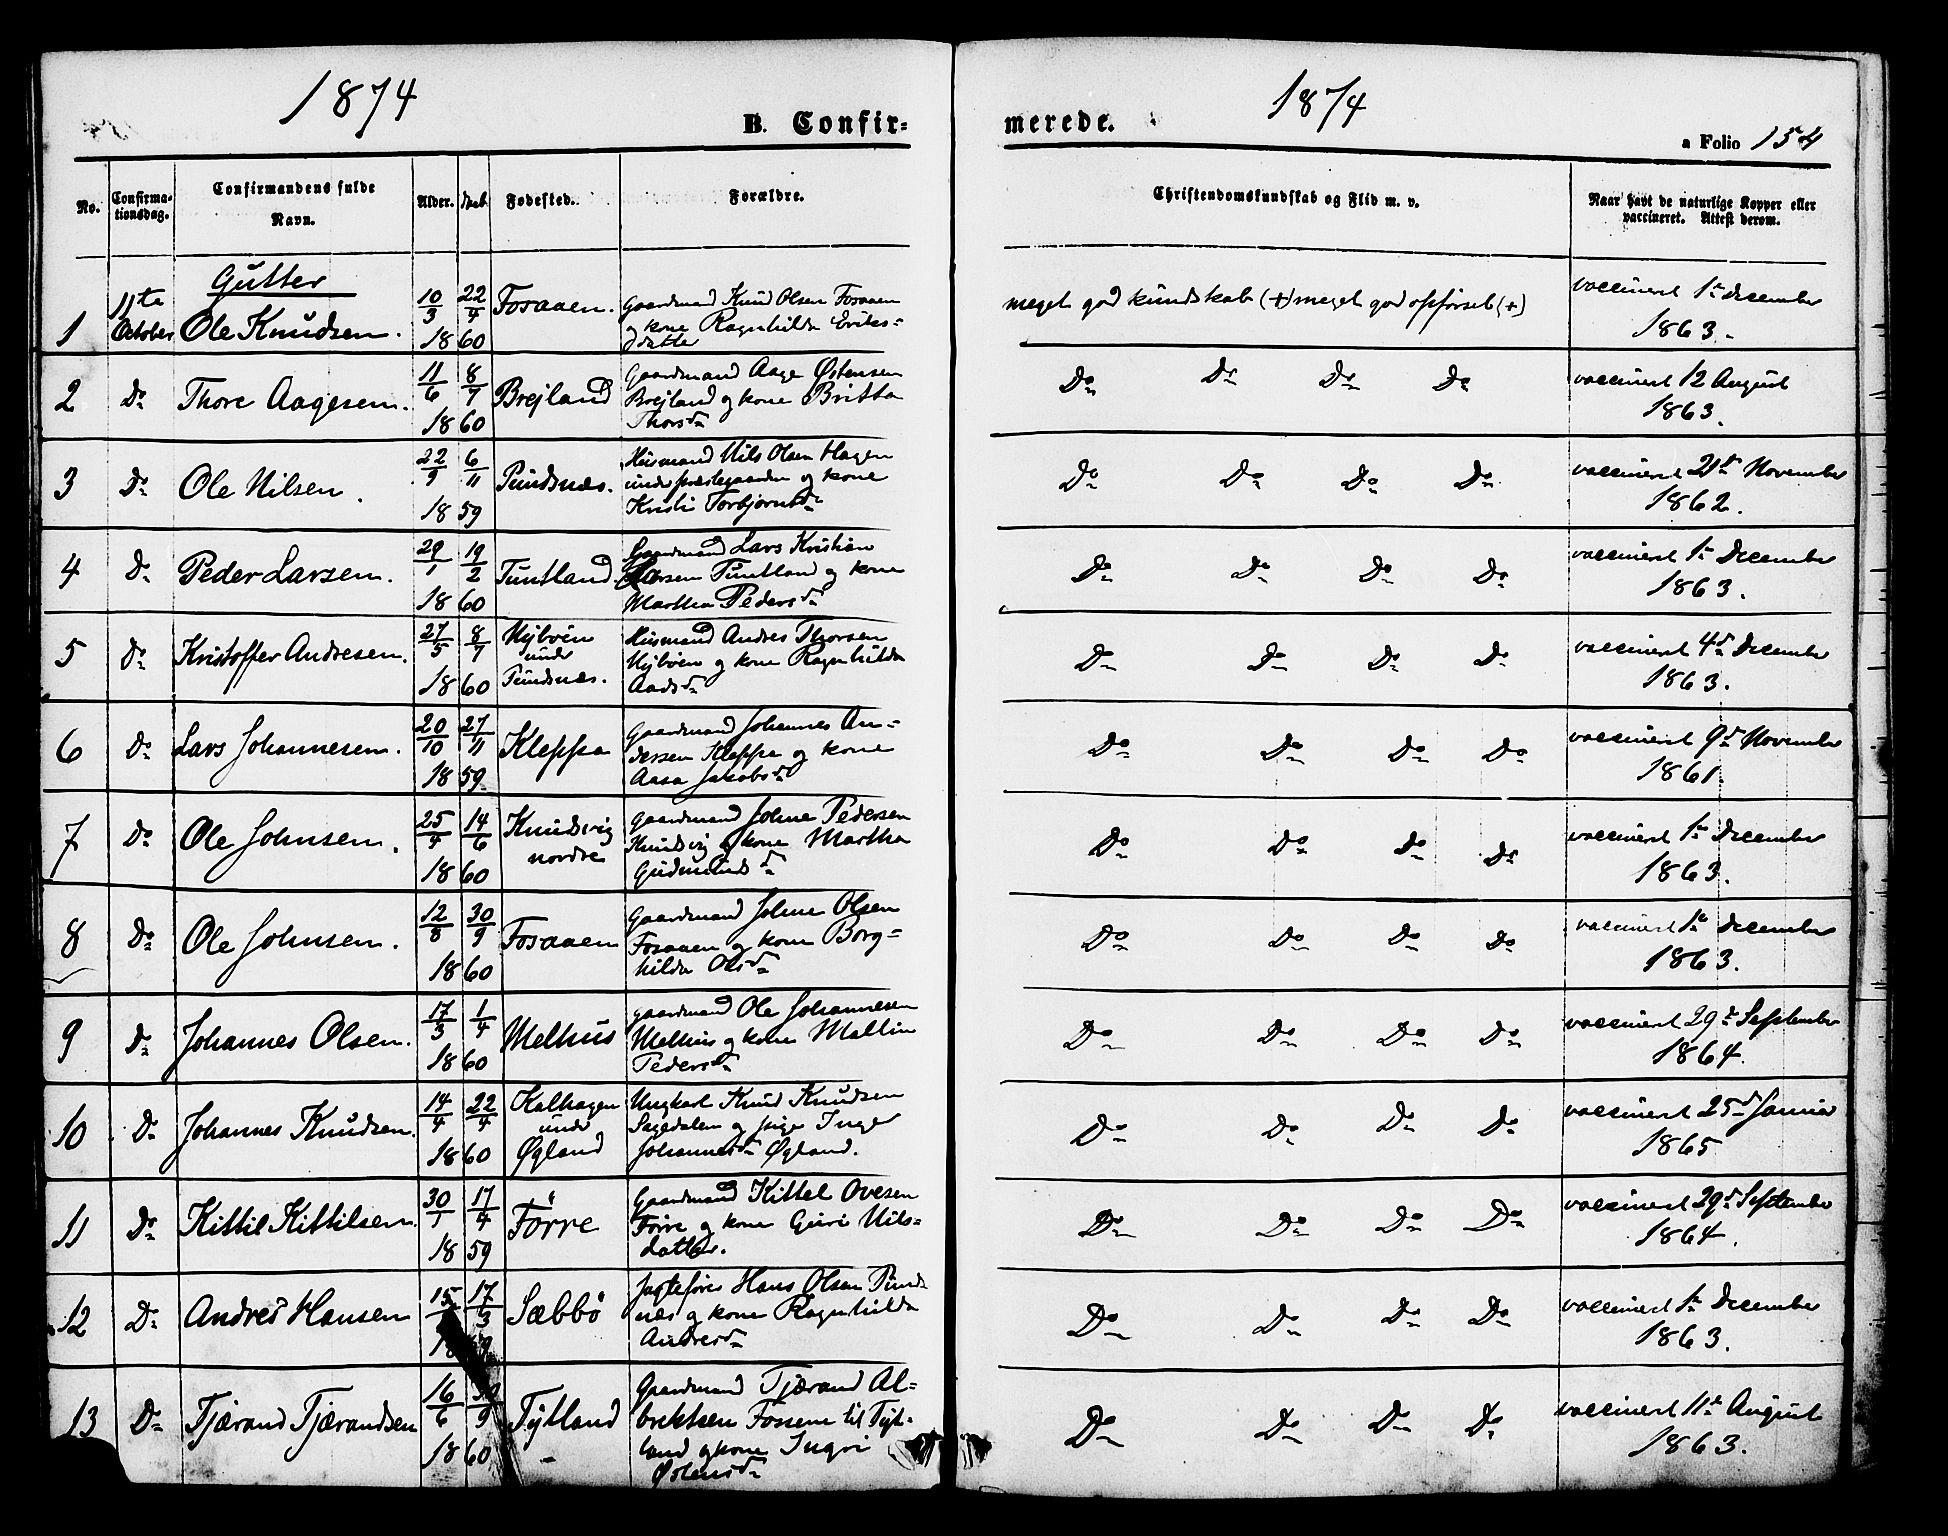 1874
1874
B. Confir=
merede.
a Folio 154
No.
Confirma-
tionsdag.
Confirmandens fulde
Navn.
Alder.
Daab
Fødested.
Forældre.
Christendomskundskab og Flid m. v.
Naar havt de naturlige Kopper eller
vaccineret. Attest derom.
Gutter
1 11te October Ole Knudsen. 10/3 22/4 1860 Fosaaen. Gaardmand Knud Olsen Fosaaen
og kone Ragnhilda Eriks=
datter
meget god kundskab (+) meget god opførsel (+)
vaccineret 1ste december
1863.
2 Do Thore Aagesen. 11/6 8/7 1860 Brejland Gaardmand Aage Østensen
Brejland og kone Britta
Thorsd
Do Do Do Do
vaccineret 12 August
1863.
3 Do Ole Nilsen. 22/9 6/11 1859 Pundsnæs. Husmand Nils Olsen Hagen
under præstegaarden og kone
Kristi Torbjørnsd
Do Do Do Do
vaccineret 21d November
1862.
4 Do Peder Larsen. 29/1 19/2 1860 Tuntland. Gaardmand Lars Kristian
Larsen Tuntland og kone
Martha Pedersd
Do Do Do Do
vaccineret 1ste December
1863.
5 Do Kristoffer Andresen. 27/5 8/7 1860 Nybøen
under
Pundsnæs.
Husmand Andres Thorsen
Nybøen og kone Ragnhilda
Aadsd
Do Do Do Do
vaccineret 4d December
1863.
6 Do Lars Johannesen. 20/10 27/11 1859 Kleppa Gaardmand Johannes An=
dersen Kleppa og kone
Aasa Jakobsd
Do Do Do Do
vaccineret 9d November
1861.
7 Do Ole Johnsen. 25/4 14/6 1860 Knudsvig
nordre
gaardmand Johne Pedersen
Knudsvig og kone Martha
Gudmundsd
Do Do Do Do
vaccineret 1ste December
1863.
8 Do Ole Johnsen. 12/8 30/9 1860 Fosaaen Gaardmand Johne Olsen
Fosaaen og kone Borg=
hilda Olsd
Do Do Do Do
vaccineret 1ste December
1863.
9 Do Johannes Olsen. 17/3 1/4 1860 Melhus gaardmand Ole Johannesen
Melhus og kone Mallin
Pedersd
Do Do Do Do
vaccineret 29d September
1864.
10 Do Johannes Knudsen. 14/4 22/4 1860 Kalhagen
under
Øgland
Ungkarl Knud Knudsen
Sagedalen og pige Inger
Johannesd Øgland.
Do Do Do Do
vaccineret 25d Januar
1865
11 Do Kittil Kittilsen. 30/1 17/4 1859 Förre Gaardmand Kittel Ovesen
Førre og kone Guri Nils=
datter.
Do Do Do Do
vaccineret 29d September
1864.
12 Do Andres Hansen 15 17/3 18 Sæbbö Jagtefører Hans Olsen Punds
næs og kone Ragnhilda
Andresd
Do Do Do Do
vaccineret 1ste December
1863.
13 Do Tjærand Tjærandsen 16/6 1860 Tytland Gaardmand Tjærand Al=
brektsen Fossene til Tyt=
land og kone Ingri
Østensd
Do Do Do Do
vaccineret 11te August
1863.